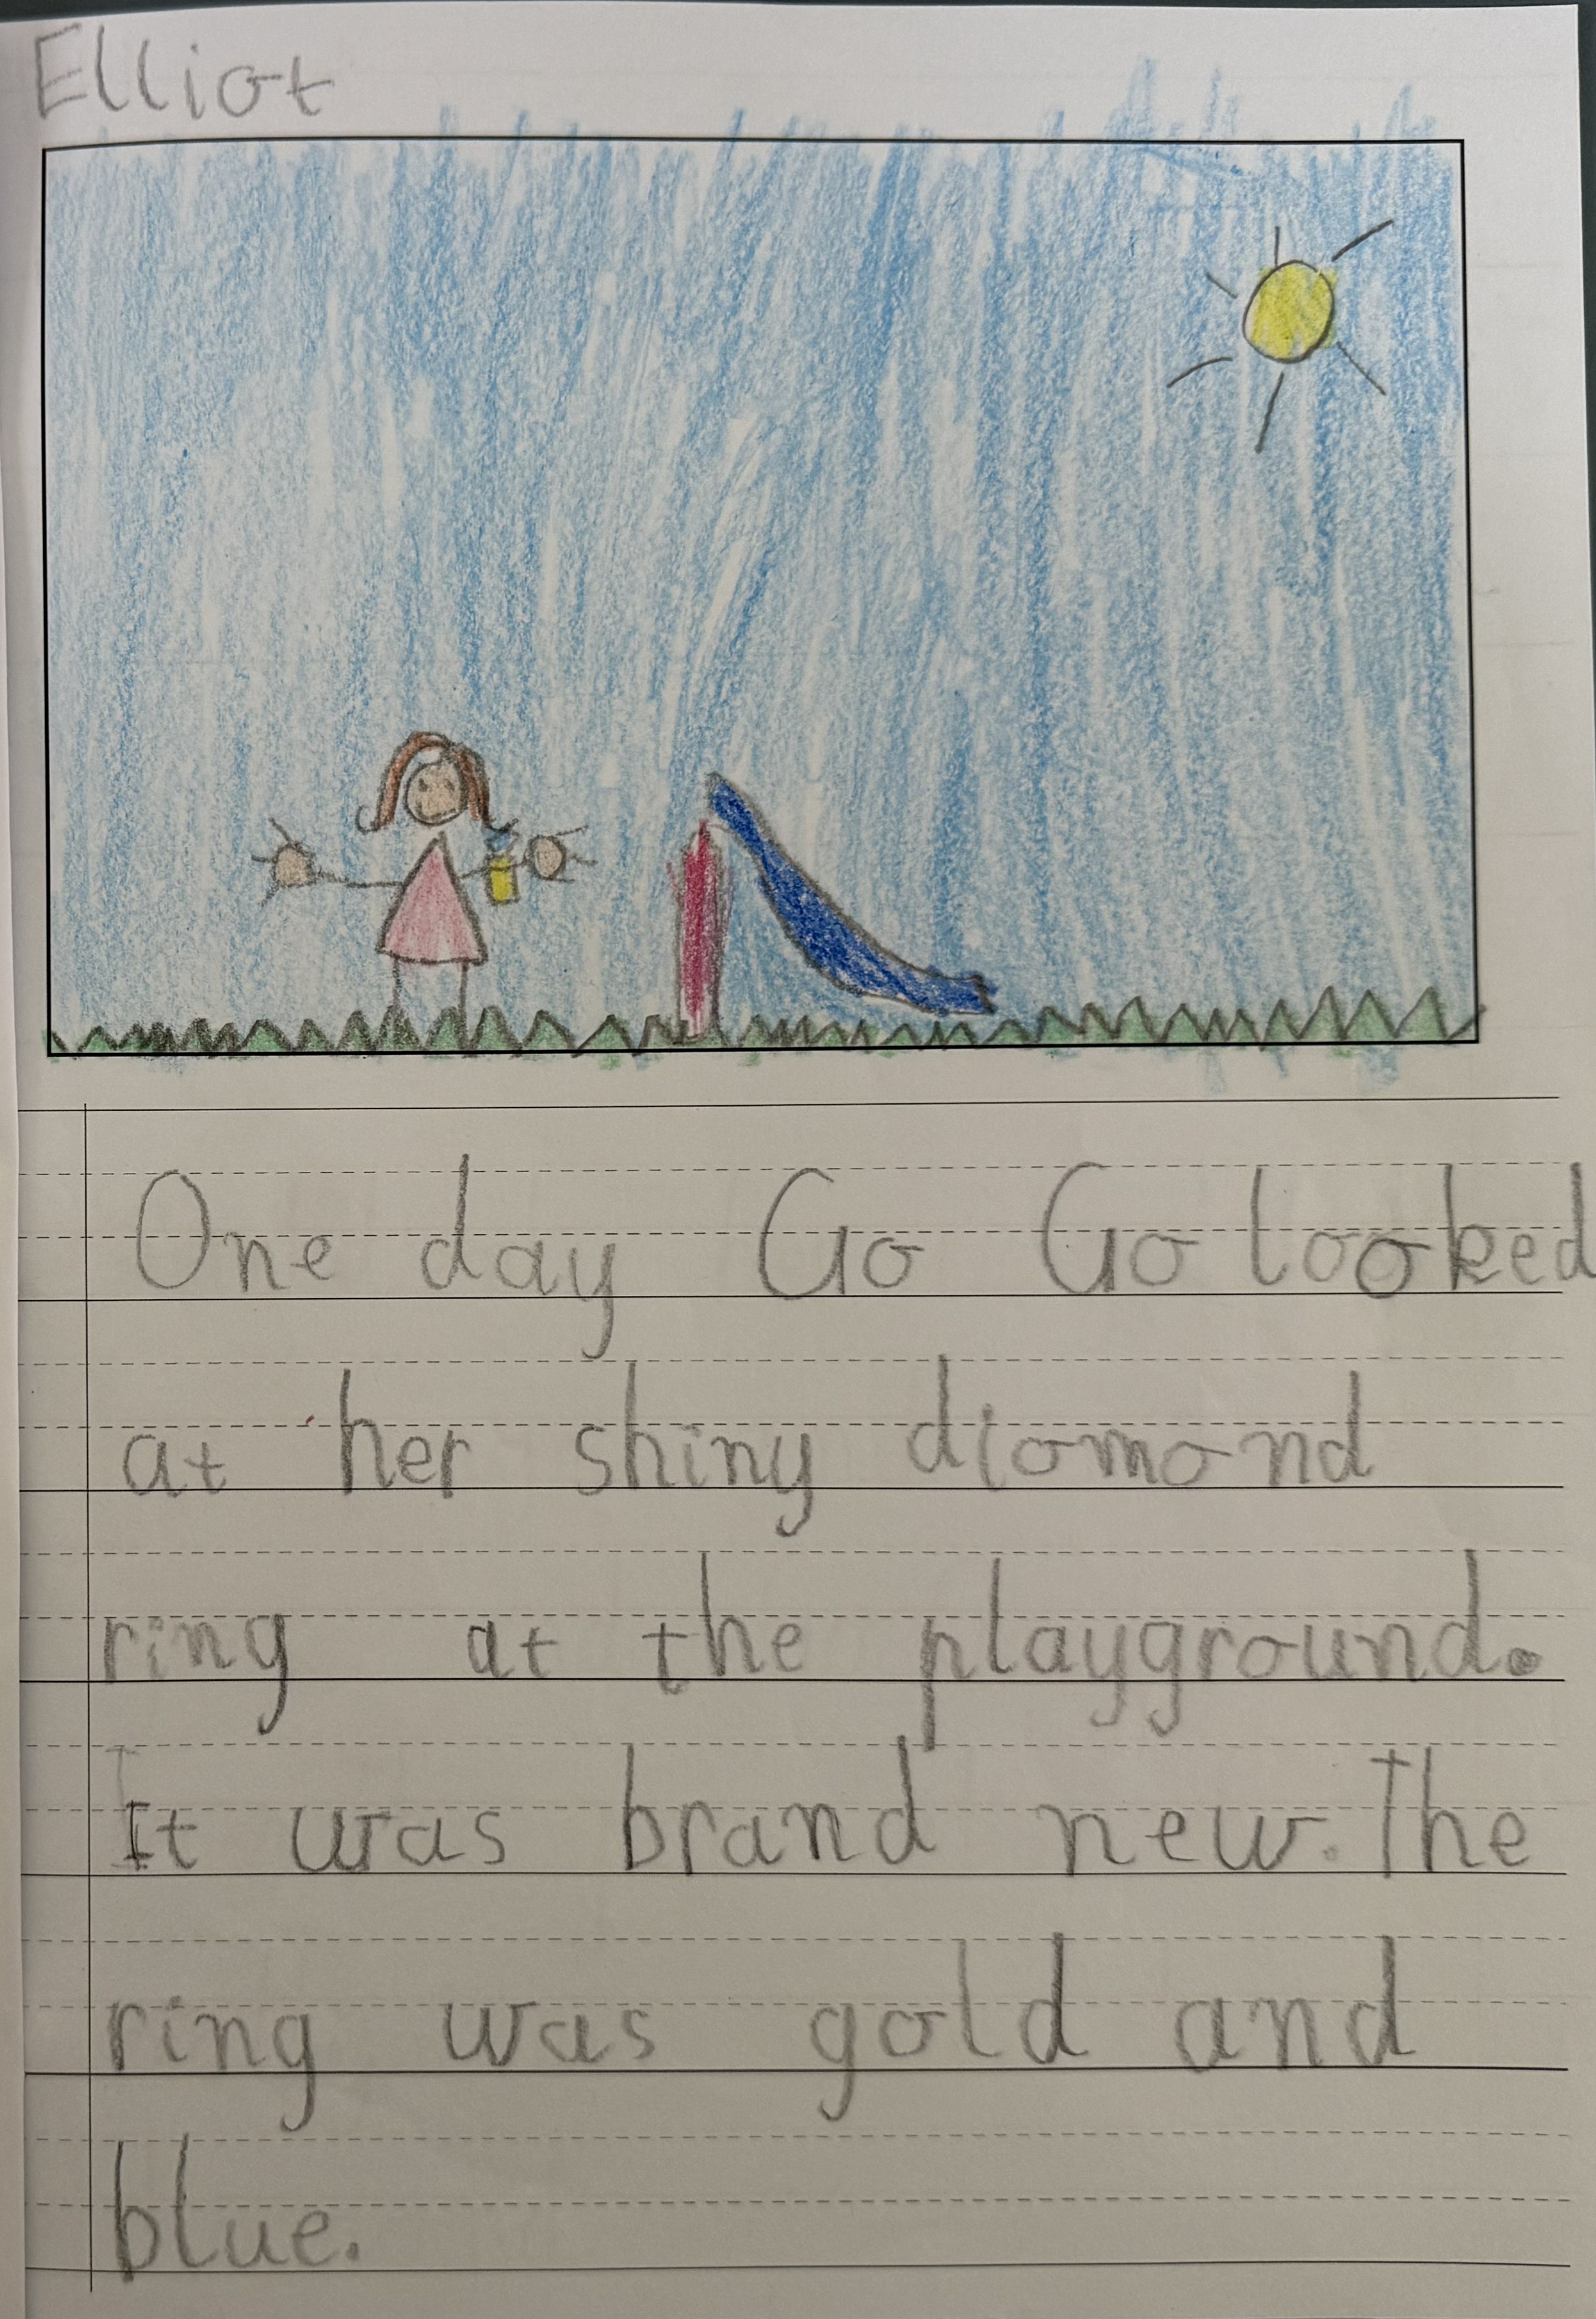 Elliot
One day Go Go looked
at her shiny diomond
ring at the playground.
It was brand new. The
ring was gold and
blue.